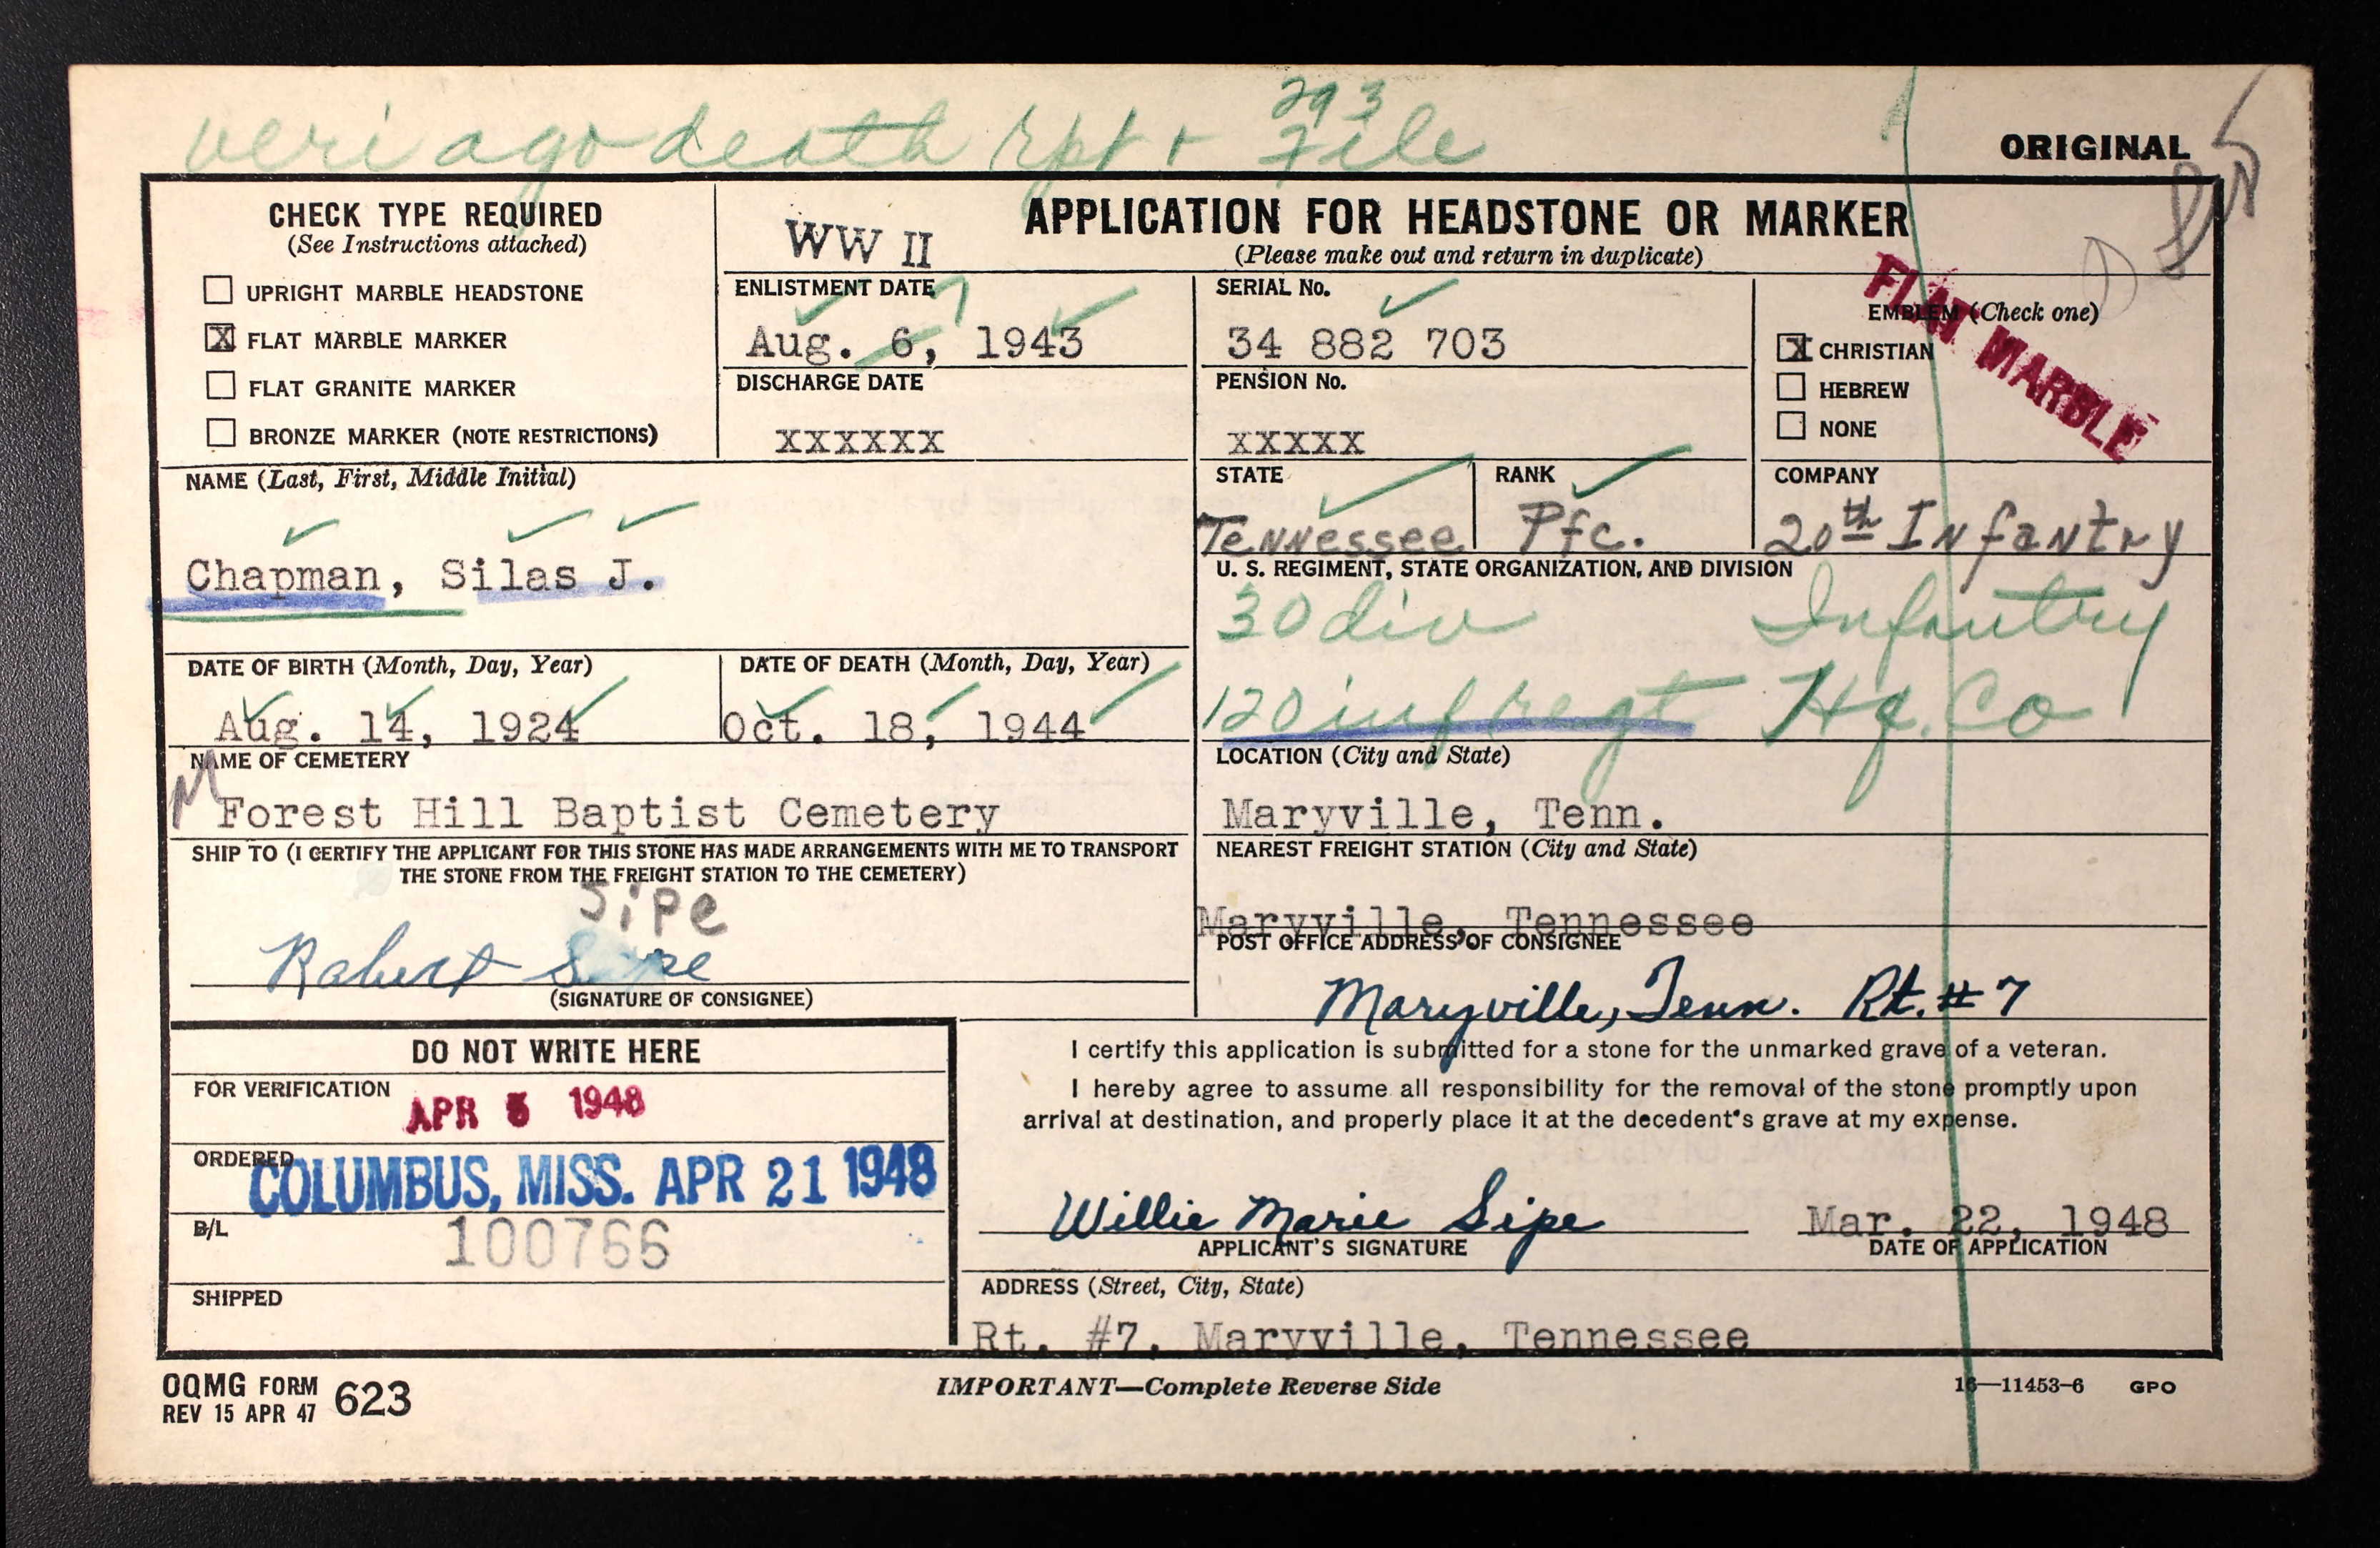 veri ago death rpt + 293 File
ORIGINAL
CHECK TYPE REQUIRED
(See Instructions attached)
UPRIGHT MARBLE HEADSTONE
X FLAT MARBLE MARKER
FLAT GRANITE MARKER
BRONZE MARKER (NOTE RESTRICTIONS)
WW II
APPLICATION FOR HEADSTONE OR MARKER
(Please make out and return in duplicate)
ENLISTMENT DATE
7
Aug. 6, 1943
DISCHARGE DATE
XXXXXX
SERIAL No.
34 882 703
PENSION No.
XXXXX
EMBLEM (Check one)
X CHRISTIAN
HEBREW
NONE
FLAT MARBLE
NAME (Last, First, Middle Initial)
Chapman, Silas J.
STATE
Tennessee
RANK
Pfc.
COMPANY
20th Infantry
U. S. REGIMENT, STATE ORGANIZATION, AND DIVISION
30 div Infantry
120 inf regt Hq. Co
DATE OF BIRTH (Month, Day, Year)
Aug. 14, 1924
DATE OF DEATH (Month, Day, Year)
Oct. 18, 1944
NAME OF CEMETERY
Forest Hill Baptist Cemetery
LOCATION (City and State)
Maryville, Tenn.
SHIP TO (I CERTIFY THE APPLICANT FOR THIS STONE HAS MADE ARRANGEMENTS WITH ME TO TRANSPORT
THE STONE FROM THE FREIGHT STATION TO THE CEMETERY)
Sipe
Robert Sipe
(SIGNATURE OF CONSIGNEE)
NEAREST FREIGHT STATION (City and State)
Maryville, Tennessee
POST OFFICE ADDRESS OF CONSIGNEE
Maryville, Tenn. Rt. #7
DO NOT WRITE HERE
FOR VERIFICATION
APR 5 1948
ORDERED
COLUMBUS, MISS. APR 21 1948
B/L
100766
SHIPPED
I certify this application is submitted for a stone for the unmarked grave of a veteran.
I hereby agree to assume all responsibility for the removal of the stone promptly upon
arrival at destination, and properly place it at the decedent's grave at my expense.
Willie Marie Sipe
APPLICANT'S SIGNATURE
Mar. 22, 1948
DATE OF APPLICATION
ADDRESS (Street, City, State)
Rt. #7, Maryville, Tennessee
OQMG FORM 623
REV 15 APR 47
IMPORTANT—Complete Reverse Side
16—11453-6 GPO